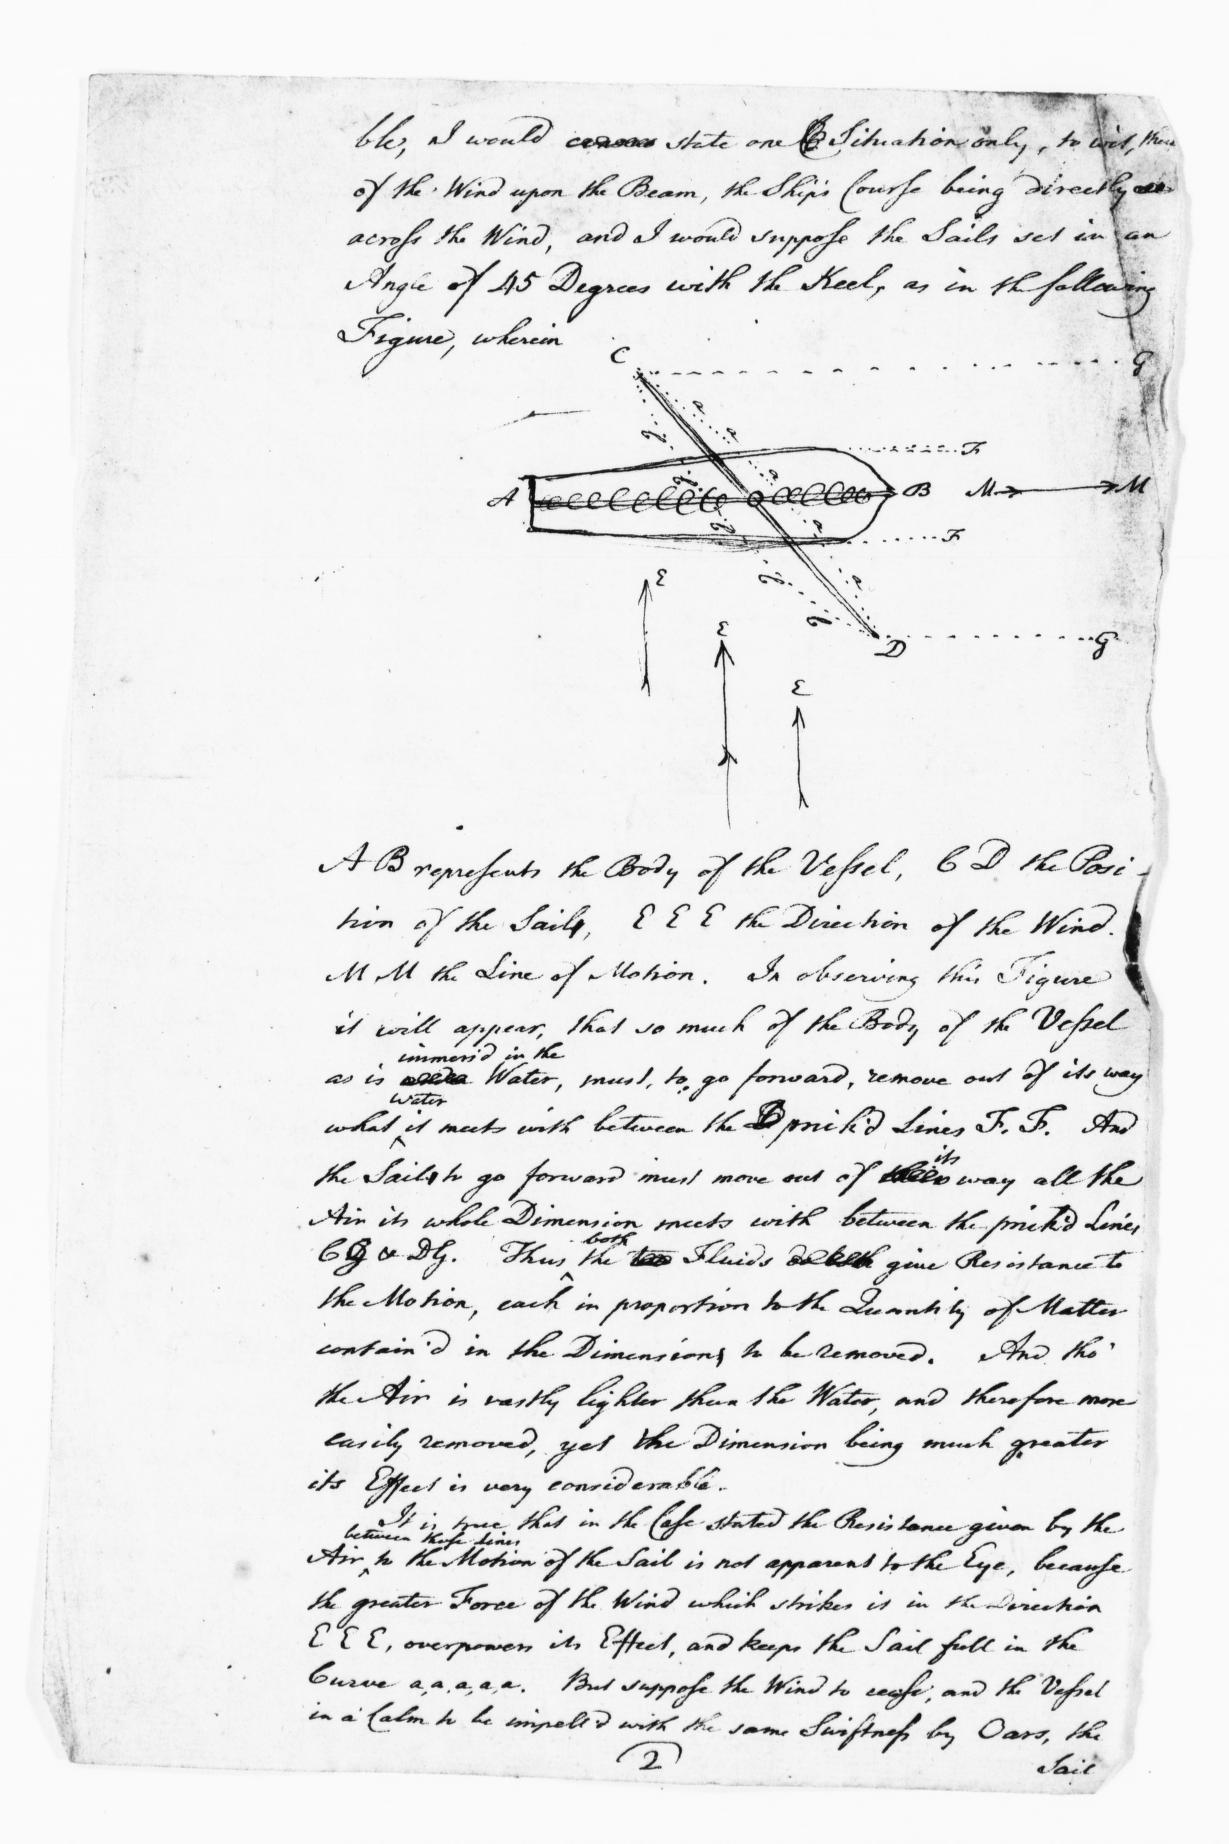 ble, I would state one Situation only, to wit, that
of the Wind upon the Beam, the Ship's Course being directly
across the Wind, and I would suppose the Sails set in an
Angle of 45 Degrees with the Keel, as in the following
Figure, wherein
C G
a
b a
F
b a
A B M M
b a
F
b a
E b
E D G
E
A B represents the Body of the Vessel, C D the Posi-
tion of the Sail, E E E the Direction of the Wind.
M M the Line of Motion. In observing this Figure
it will appear, that so much of the Body of the Vessel
immers'd in the
as is Water, must, to go forward, remove out of its way
water
what ^ it meets with between the prick'd Lines F. F. And
its
the Sail to go forward must move out of way all the
Air its whole Dimension meets with between the prick'd Lines
CG & DG. Thus
both
^ the Fluids give Resistance to
the Motion, each in proportion to the Quantity of Matter
contain'd in the Dimensions to be removed. And tho'
the Air is vastly lighter than the Water, and therefore more
easily removed, yet the Dimension being much greater
its Effect is very considerable.
It is true that in the Case stated the Resistance given by the
between those Lines
Air ^ to the Motion of the Sail is not apparent to the Eye, because
the greater Force of the Wind which strikes it in the Direction
E E E, overpowers its Effect, and keeps the Sail full in the
Curve a, a, a, a, a. But suppose the Wind to cease, and the Vessel
in a Calm to be impell'd with the same Swiftness by Oars, the
2
Sail